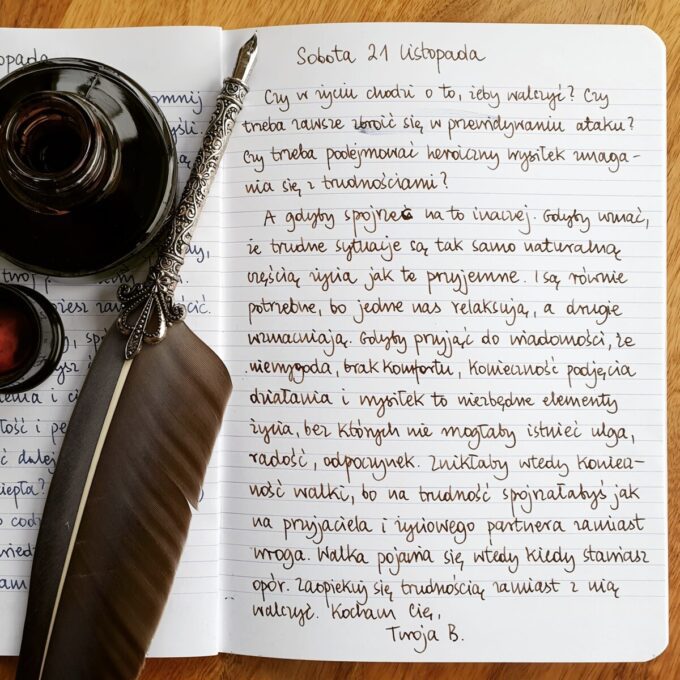 opada
omnij
yśli.
twoj p
iesz
cić.
enia i ci
łość i pe
ć dalej
iepła?
o codz
wiedz
am
Sobota 21 listopada
Czy w życiu chodzi o to, żeby walczyć? Czy
trzeba zawsze zbroić się w przewidywaniu ataku?
Czy trzeba podejmować heroiczny wysiłek zmaga-
nia się z trudnościami?
A gdyby spojrzeć na to inaczej. Gdyby uznać,
że trudne sytuacje są tak samo naturalną
częścią życia jak te przyjemne. I są równie
potrzebne, bo jedne nas relaksują, a drugie
wzmacniają. Gdyby przyjąć do wiadomości, że
niewygoda, brak komfortu, konieczność podjęcia
działania i wysiłek to niezbędne elementy
życia, bez których nie mogłaby istnieć ulga,
radość, odpoczynek. Znikłaby wtedy koniecz-
ność walki, bo na trudność spojrzałabyś jak
na przyjaciela i życiowego partnera zamiast
wroga. Walka pojawia się wtedy kiedy stawiasz
opór. Zaopiekuj się trudnością zamiast z nią
walczyć. Kocham Cię,
Twoja B.